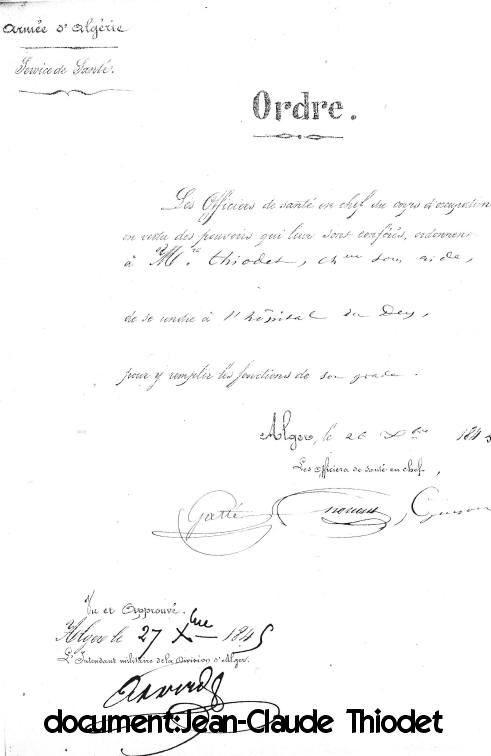 Armée d'Algérie
Service de Santé.
Ordre.
Les Officiers de santé en chef du corps d'occupation
en vertu des pouvoirs qui leur sont conférés, ordonnent
à Mr. Thiodet, chien sous aide,
de se rendre à l'hôpital du Dey,
pour y remplir les fonctions de son grade.
Alger, le 26 Xbre 184
Les officiers de santé en chef,
Vu et Approuvé.
Alger le 27 Xbre 1845
L'Intendant militaire de la Division d'Alger.
document:Jean-Claude Thiodet